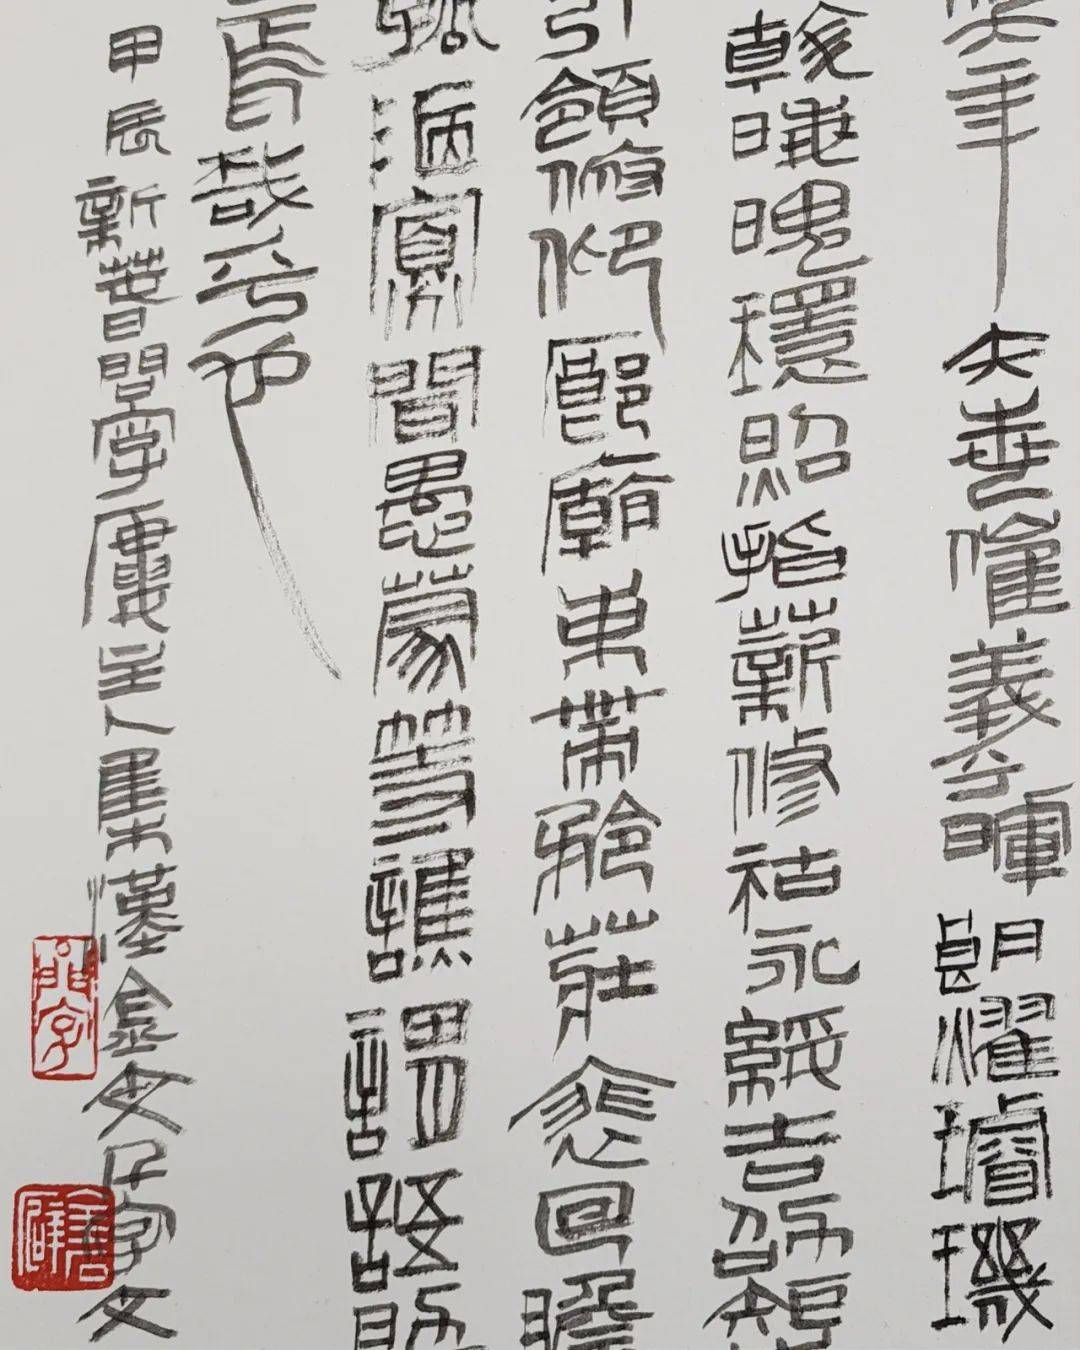 笑年矢每催羲暉朗耀璿璣
斡晦魄環照指薪修祜永綏吉劭矩
引領俯仰廊廟束帶矜莊裵回瞻
孤陋寡聞愚蒙等譙謂語助
焉哉乎也
甲辰新萅問字廔主人集漢金文千字文
問字